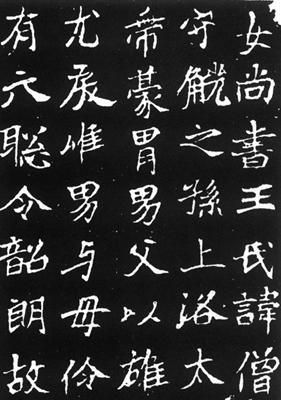 女尚書王氏諱僧
守觥之孫上洛太
帝蒙冑男父以雄
尤戾唯男与母伶
有六聡令韶朗故